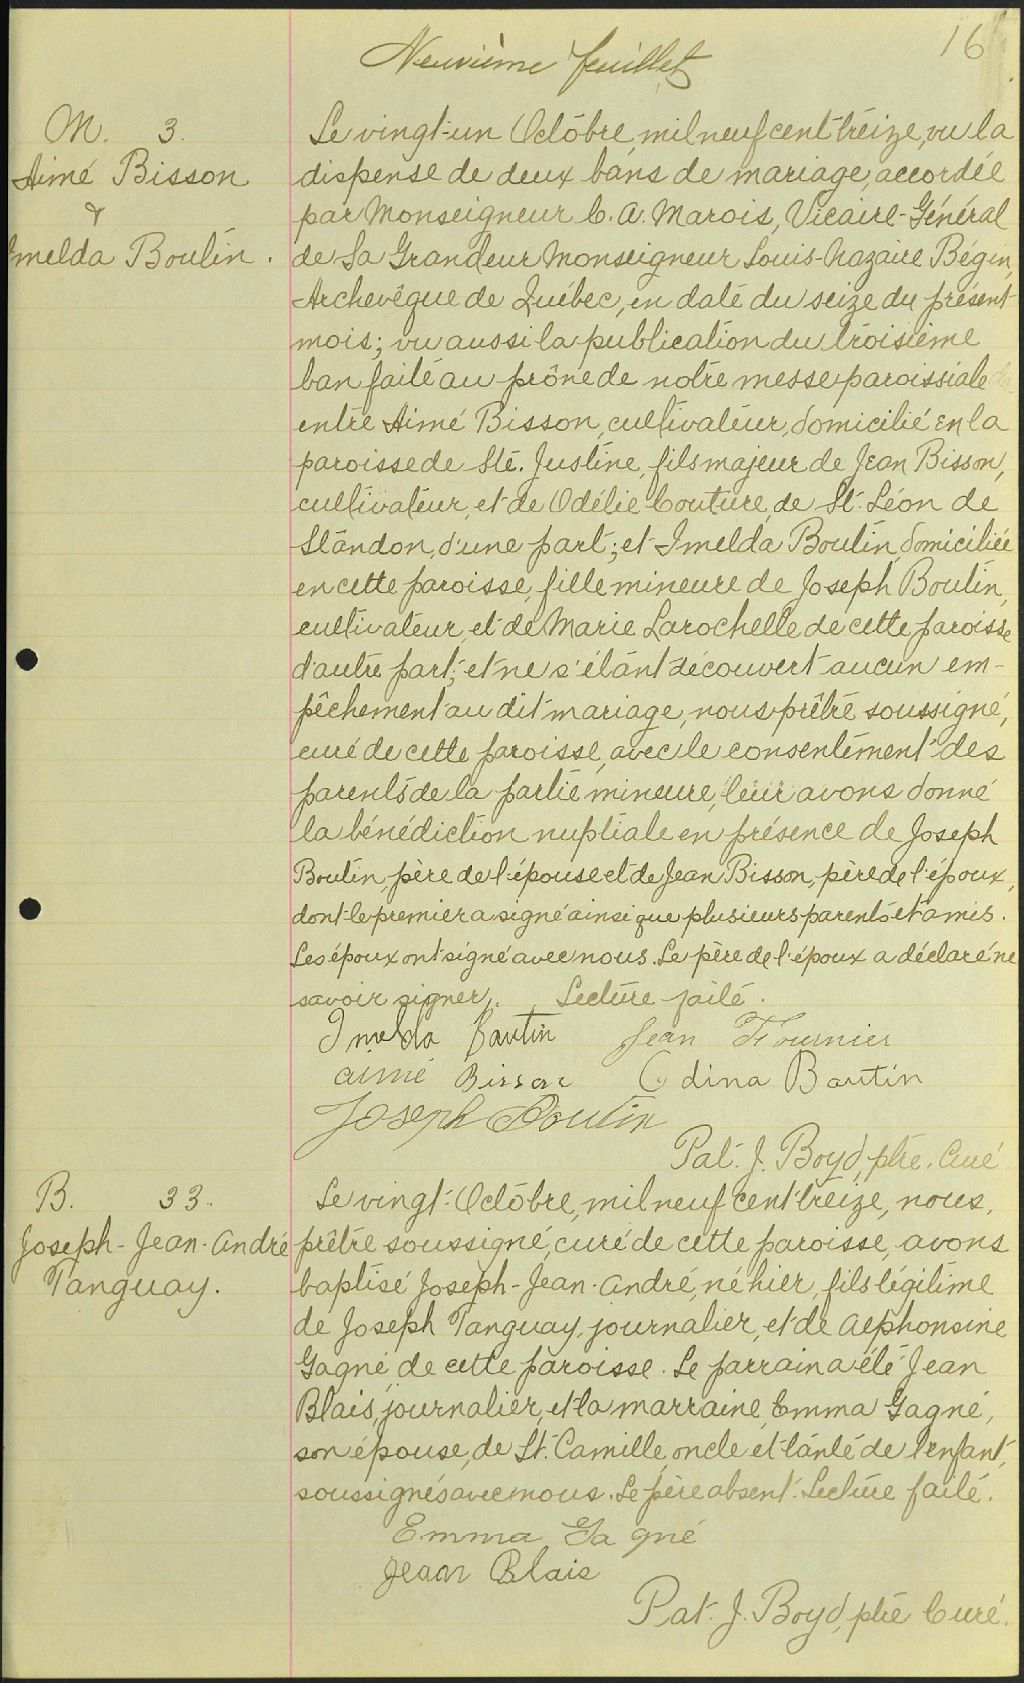 Neuvième feuillet
16
M. 3.
Aimé Bisson
&
Imelda Boutin.
Le vingt-un Octobre, mil neuf cent treize, vu la
dispense de deux bans de mariage, accordée
par Monseigneur C. A. Marois, Vicaire-Général
de Sa Grandeur Monseigneur Louis-Nazaire Bégin,
Archevêque de Québec, en date du seize du présent
mois; vu aussi la publication du troisième
ban faite au prône de notre messe paroissiale
entre Aimé Bisson, cultivateur, domicilié en la
paroisse de Ste. Justine, fils majeur de Jean Bisson,
cultivateur, et de Odélie Couture, de St. Léon de
Standon, d'une part; et Imelda Boutin, domiciliée
en cette paroisse, fille mineure de Joseph Boutin,
cultivateur, et de Marie Larochelle de cette paroisse
d'autre part; et ne s'étant découvert aucun em-
pêchement au dit mariage, nous prêtre soussigné,
curé de cette paroisse, avec le consentement des
parents de la partie mineure, leur avons donné
la bénédiction nuptiale en présence de Joseph
Boutin, père de l'épouse et de Jean Bisson, père de l'époux,
dont le premier a signé ainsi que plusieurs parents et amis.
Les époux ont signé avec nous. Le père de l'époux a déclaré ne
savoir signer. Lecture faite.
Imelda Boutin Jean Fournier
aimé Bisson Odina Boutin
Joseph Boutin
Pat. J. Boyd, ptre. Curé
B. 33.
Joseph-Jean-André
Tanguay.
Le vingt Octobre, mil neuf cent treize, nous,
prêtre soussigné, curé de cette paroisse, avons
baptisé Joseph-Jean-André, né hier, fils légitime
de Joseph Tanguay, journalier, et de Alphonsine
Gagné de cette paroisse. Le parrain a été Jean
Blais, journalier, et la marraine, Emma Gagné,
son épouse, de St. Camille, oncle et tante de l'enfant,
soussignés avec nous. Le père absent. Lecture faite.
Emma Gagné
Jean Blais
Pat. J. Boyd, ptre Curé.